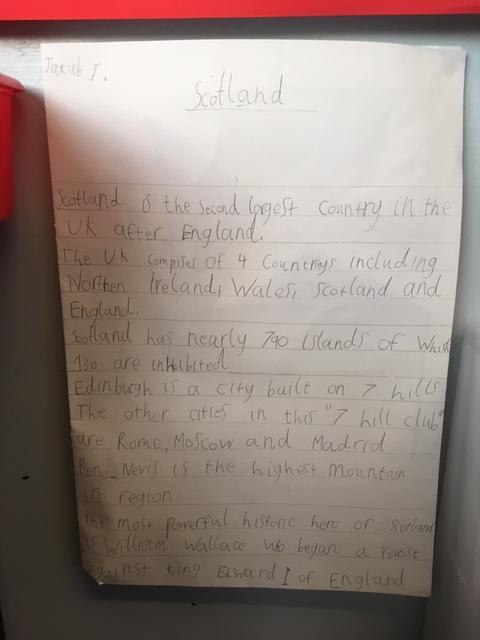 Jakub I.
Scotland
Scotland is the second largest country in the
UK after England.
The UK compises of 4 Countreys including
Northen Ireland, Wales, Scotland and
England.
Scotland has nearly 790 islands of Which
130 are inhibited.
Edinburgh is a city built on 7 hills
The other cities in this "7 hill club"
are Rome, Moscow and Madrid
Ben Nevis is the highest mountain
in region
The most powerful historic hero of Scotland
is William Wallace who began a revolt
against king Edward I of England